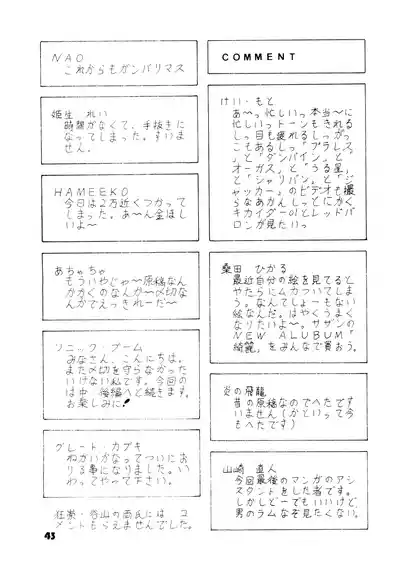 NAO
これからもガンバリマス
姫生 れい
時間がなくて、手抜きに
なってしまった。すいま
せん。
HAMEEKO
今日は2万近くつかって
しまった。あ〜ん金ほし
いよ〜
あちゃちゃ
もういやじゃ〜原稿なん
かかくのなんか〜〆切な
んかでえっきれーだ〜
ソニック・ブーム
みなさん、こんにちは。
また〆切を守らなかった
いけない私です。今回の
は中、後編へと続きます。
お楽しみに!
グレート・カブキ
ねがいかなってついにお
りる事になりました。い
わってやって下さい。
狂祭・谷山の両氏には コ
メントもらえませんでした。
43
COMMENT
けい・もと
あ〜っ忙しいっ本当〜に
忙しいっトーンもきれる
しっ目も疲れるしっがっ
こもあるしっ「プラレス
」と「ダンバイン」と「
オーガス」と「うる星」
と「シャリバン」と「ジ
ャッカー」のビデオも撮
らなあかんしっとにかく
キカイダー01とレッドバ
ロンが見たいっ
桑田 ひかる
最近自分の絵を見てると
やたらにムカついてしま
う。なんてしょーもない
絵なんだ。はやくうまく
なりたいよ〜。サザンの
NEW ALUBUM「
綺麗」をみんなで買おう。
炎の飛龍
昔の原稿なのでへたです
いません(かといって今
もへたです)
山崎 直人
今回最後のマンガのアシ
スタントをした者です。
しかしどーでもいいけど、
男のラムなぞ見たくない。